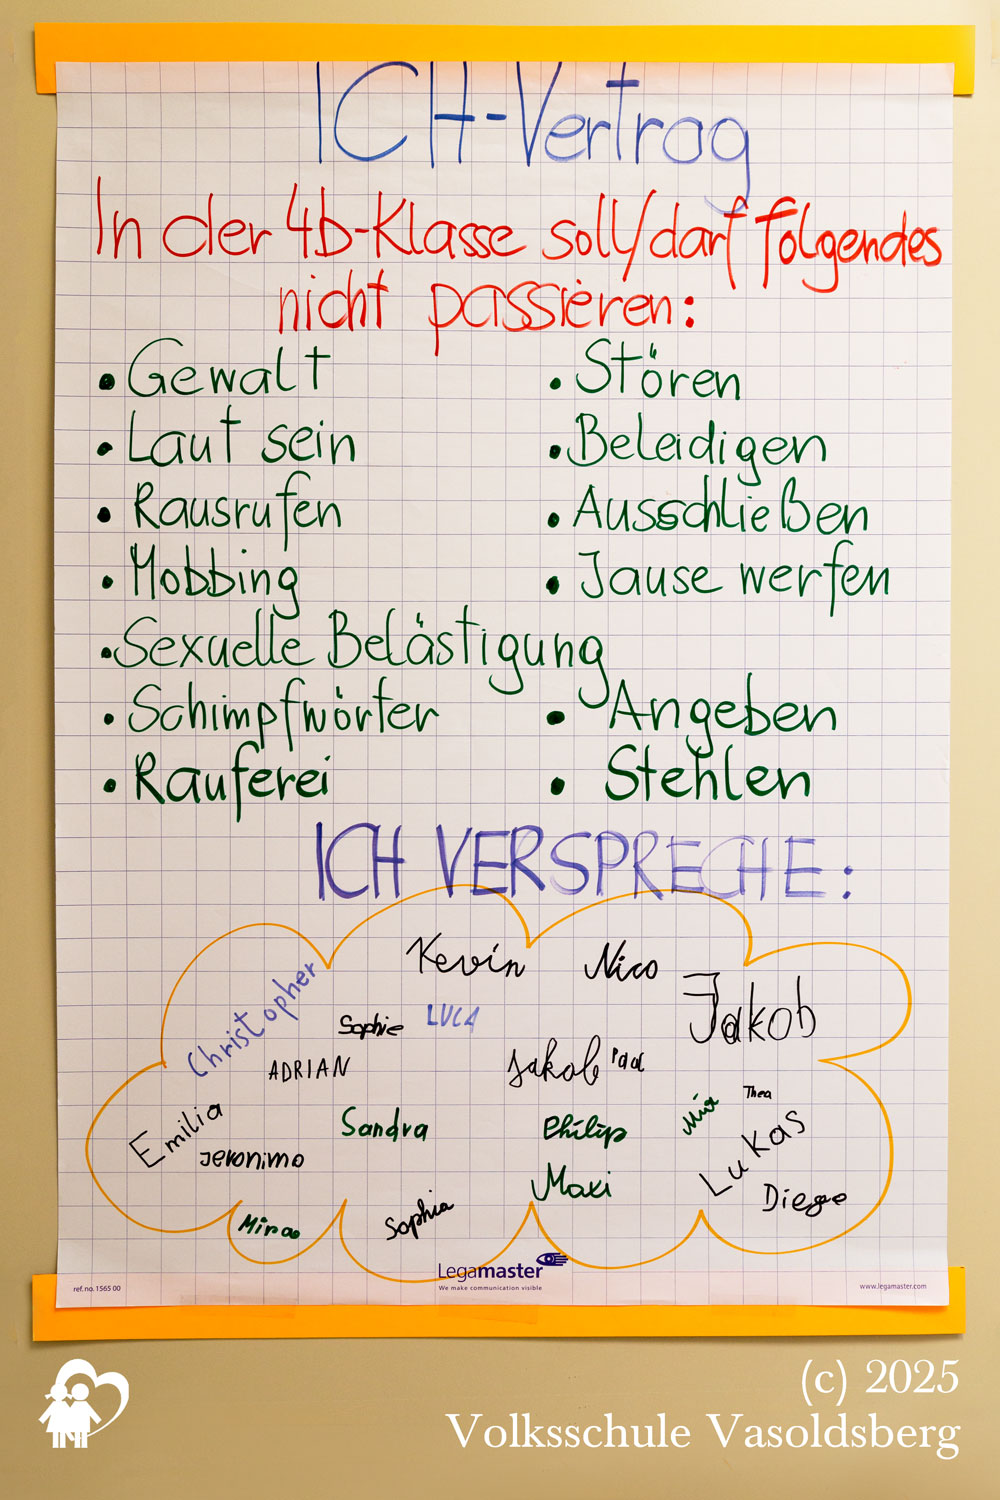 ICH-Vertrag
In der 4b-Klasse soll/darf folgendes
nicht passieren:
• Gewalt
• Laut sein
• Rausrufen
• Mobbing
• Sexuelle Belästigung
• Schimpfwörter
• Rauferei
• Stören
• Beleidigen
• Ausschließen
• Jause werfen
• Angeben
• Stehlen
ICH VERSPRECHE:
Kevin
Nico
Jakob
Christopher
Sophie
LUCA
ADRIAN
Jakob
Thea
Emilia
Jeronimo
Sandra
Philip
Lukas
Maxi
Diego
Mira
Sophia
Legamaster
We make communication visible
ref.no. 1565 00
www.legamaster.com
(c) 2025
Volksschule Vasoldsberg